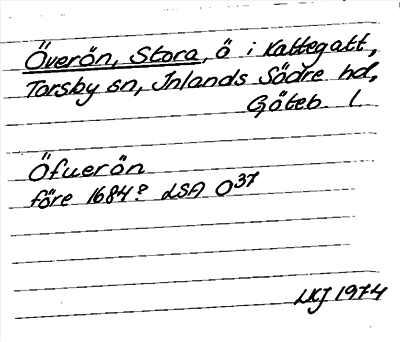 Överön, Stora, ö i Kattegatt,
Torsby sn, Inlands Södre hd,
Göteb. l
Öfuerön
före 1684? LSA O37
LKJ 1974